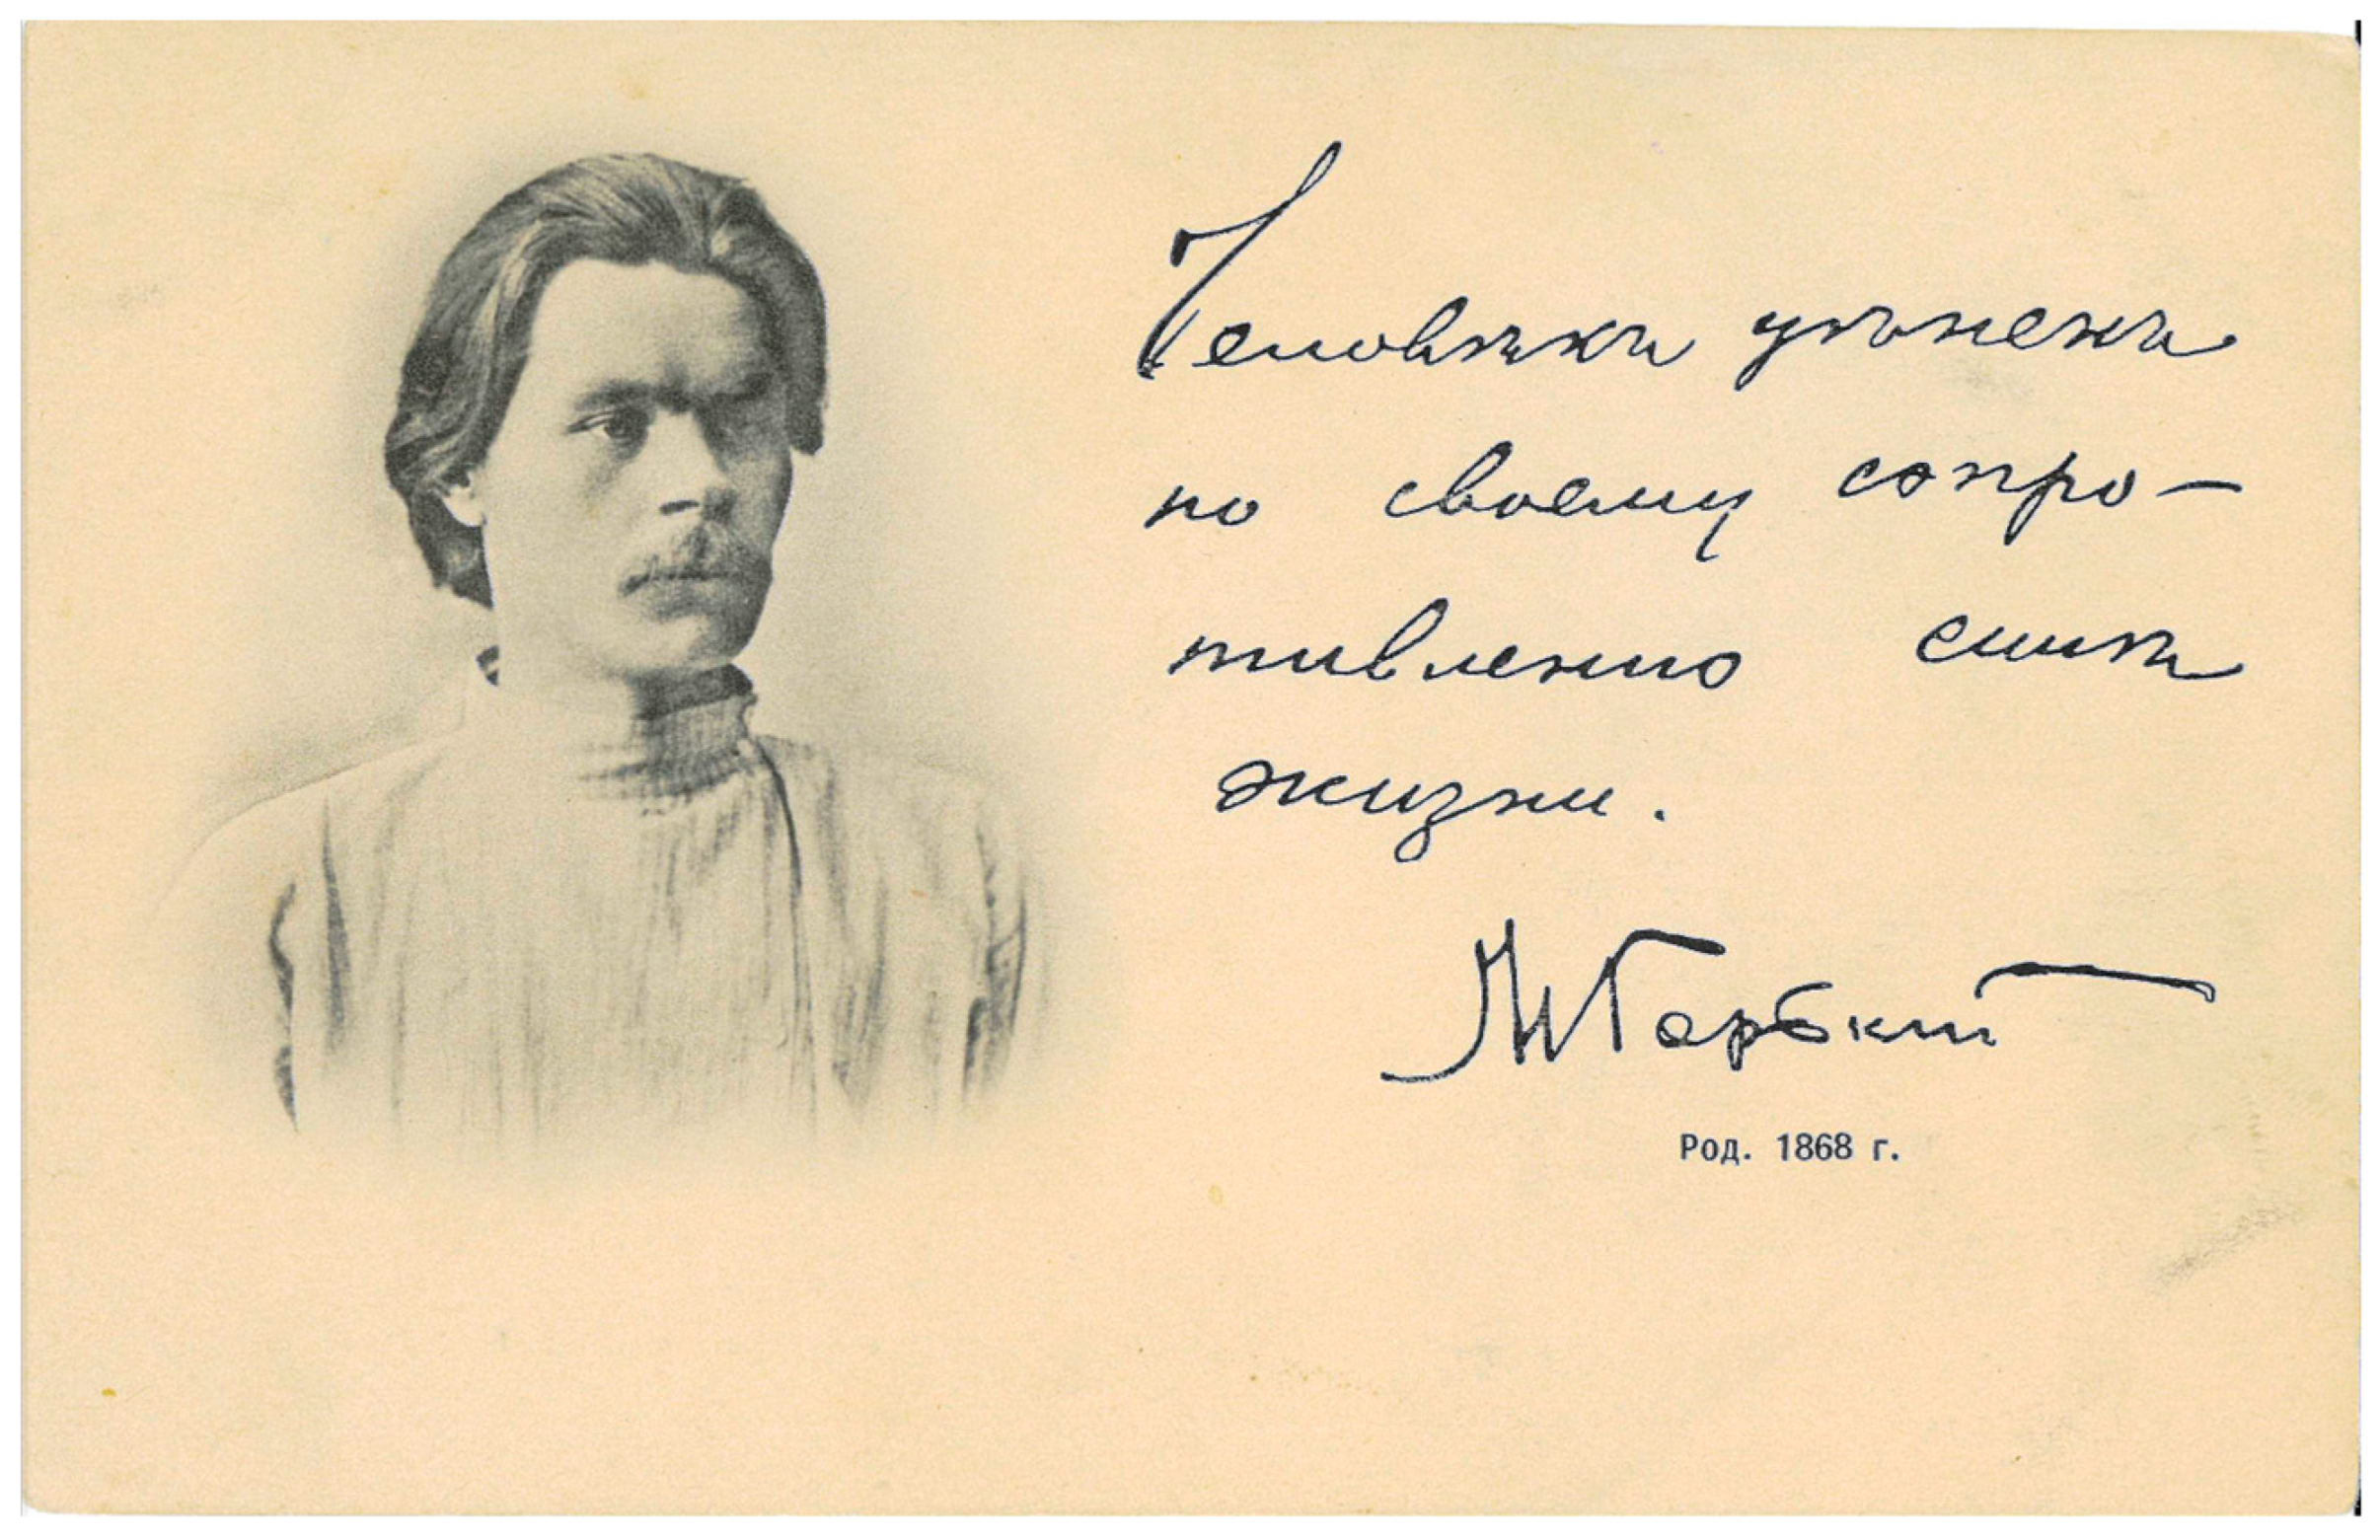 Человѣкъ цѣненъ
по своему сопро-
тивленію силѣ
жизни.
М Горькій
Род. 1868 г.